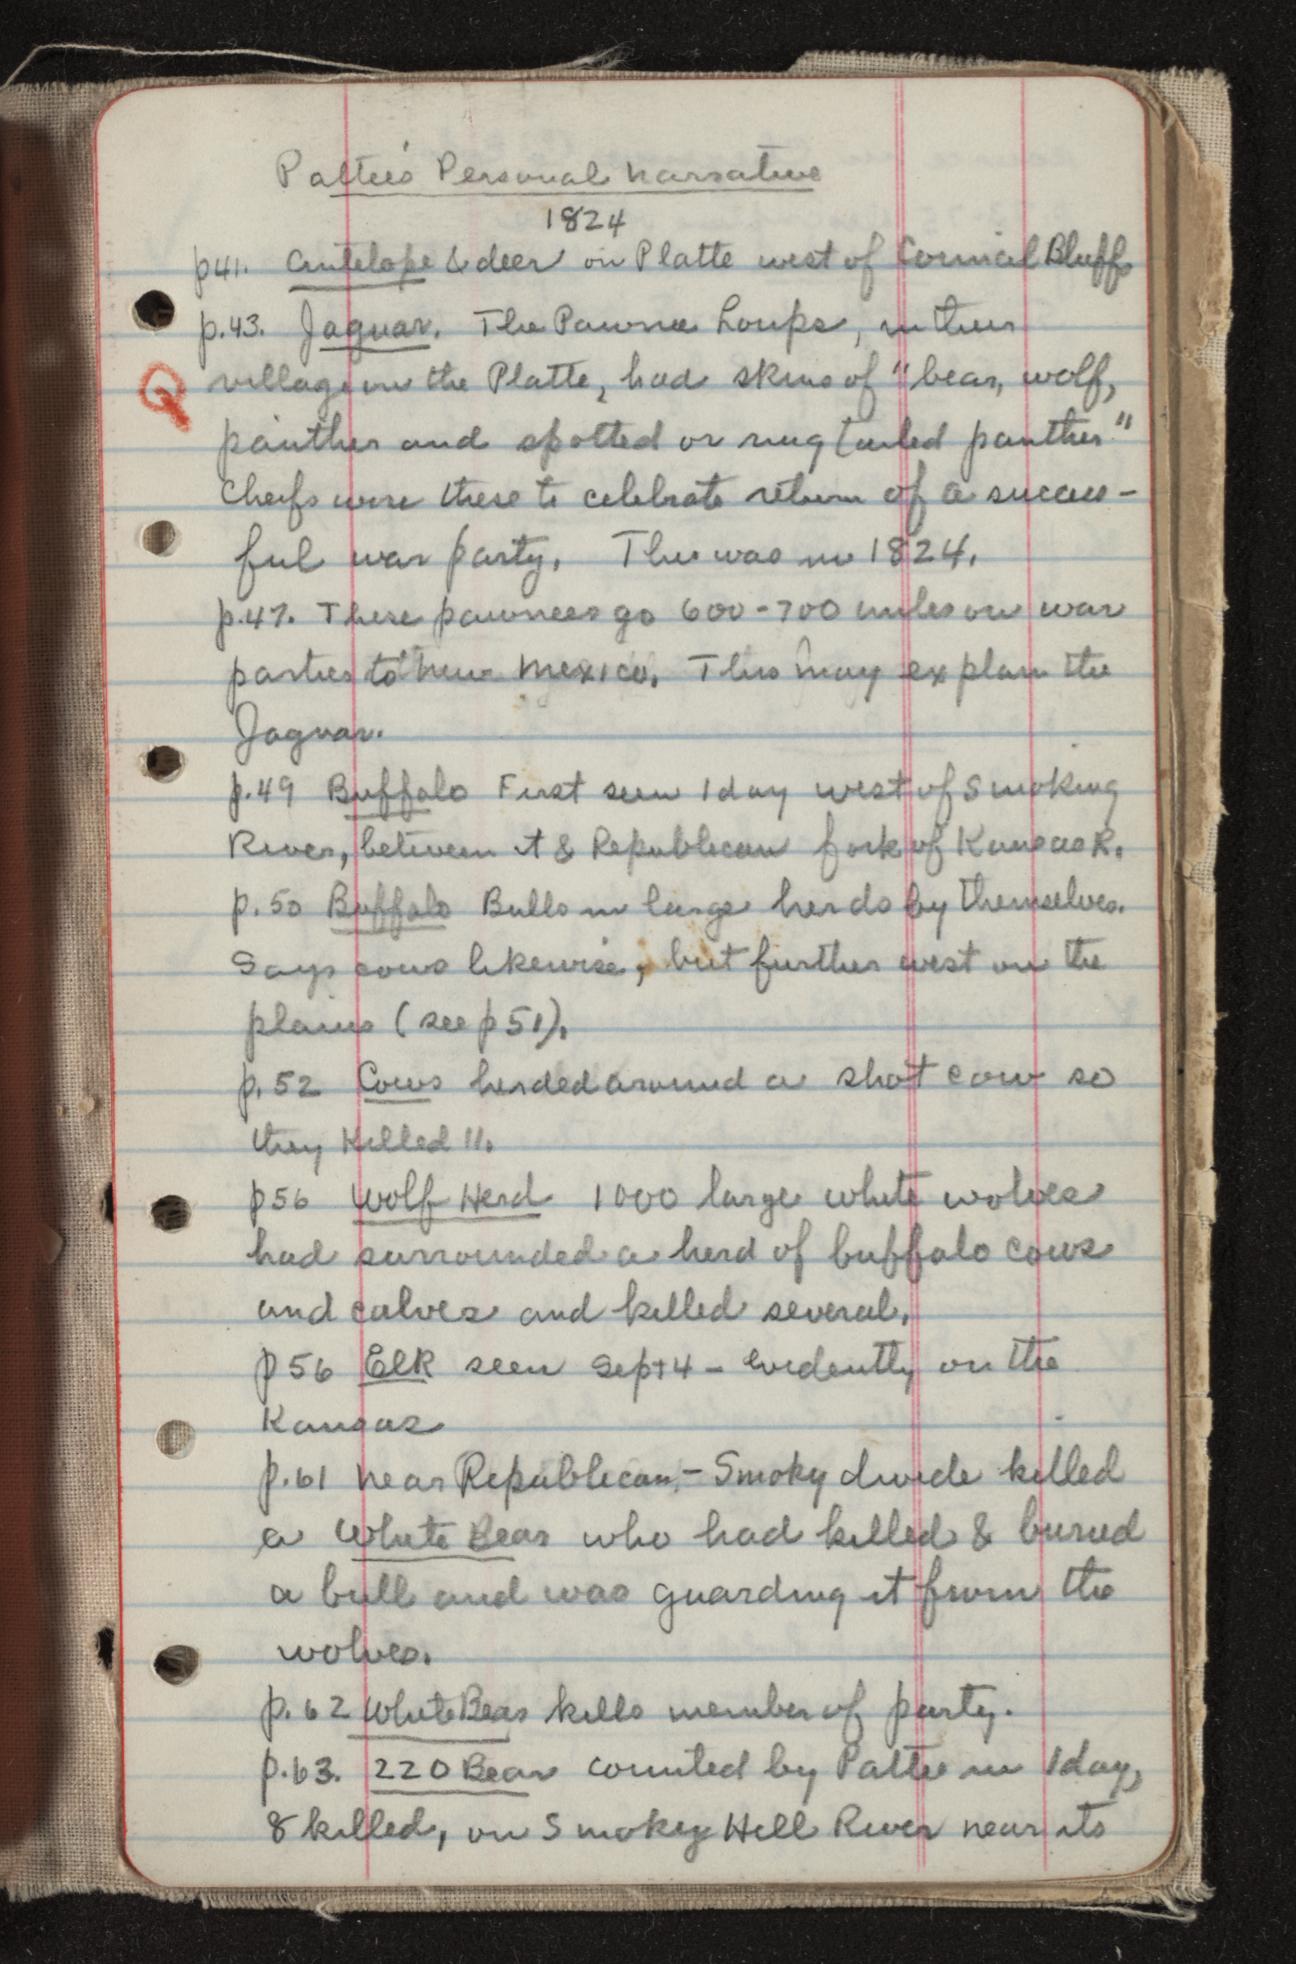 Pattie's Personal Narrative
1824
p41. Antelope & deer on Platte west of Council Bluff
p.43. Jaguar. The Pawnee Loups, in their
Q village on the Platte, had skins of "bear, wolf,
panther and spotted or ring tailed panther"
Cheifs were there to celebrate return of a success-
ful war party. This was in 1824.
p.47. These pawnees go 600-700 miles on war
parties to New Mexico. This may explain the
Jaguar.
p.49 Buffalo First seen 1 day west of Smoking
River, between it & Republican fork of Kansas R.
p.50 Buffalo Bulls in large herds by themselves.
Says cows likewise, but further west on the
plains (see p51).
p.52 Cows herded around a shot cow so
they killed 11.
p56 Wolf Herd 1000 large white wolves
had surrounded a herd of buffalo cows
and calves and killed several.
p56 Elk seen Sept 4 - evidently on the
Kansas
p.61 Near Republican - Smoky divide killed
a White Bear who had killed & buried
a bull and was guarding it from the
wolves.
p.62 White Bear kills member of party.
p.63. 220 Bear counted by Pattie in 1 day,
8 killed, on Smokey Hill River near its